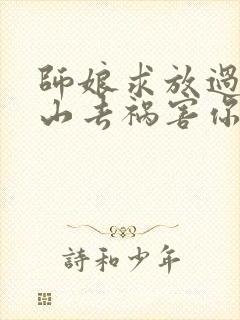 師娘求放過
山去禍害你
詩和少年